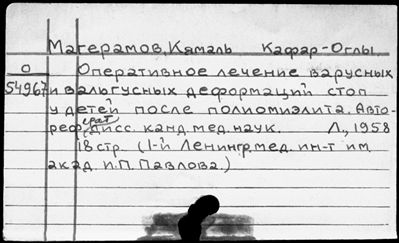 Магерамов, Кямаль Кафар-Оглы.
О Оперативное лечение варусных
54967 и вальгусных деформаций стоп
у детей после полиомиэлита. Авто-
реферат дисс. канд. мед. наук. Л., 1958
18 стр. (1-й Ленингр. мед. ин-т им.
акад. И. П. Павлова.)